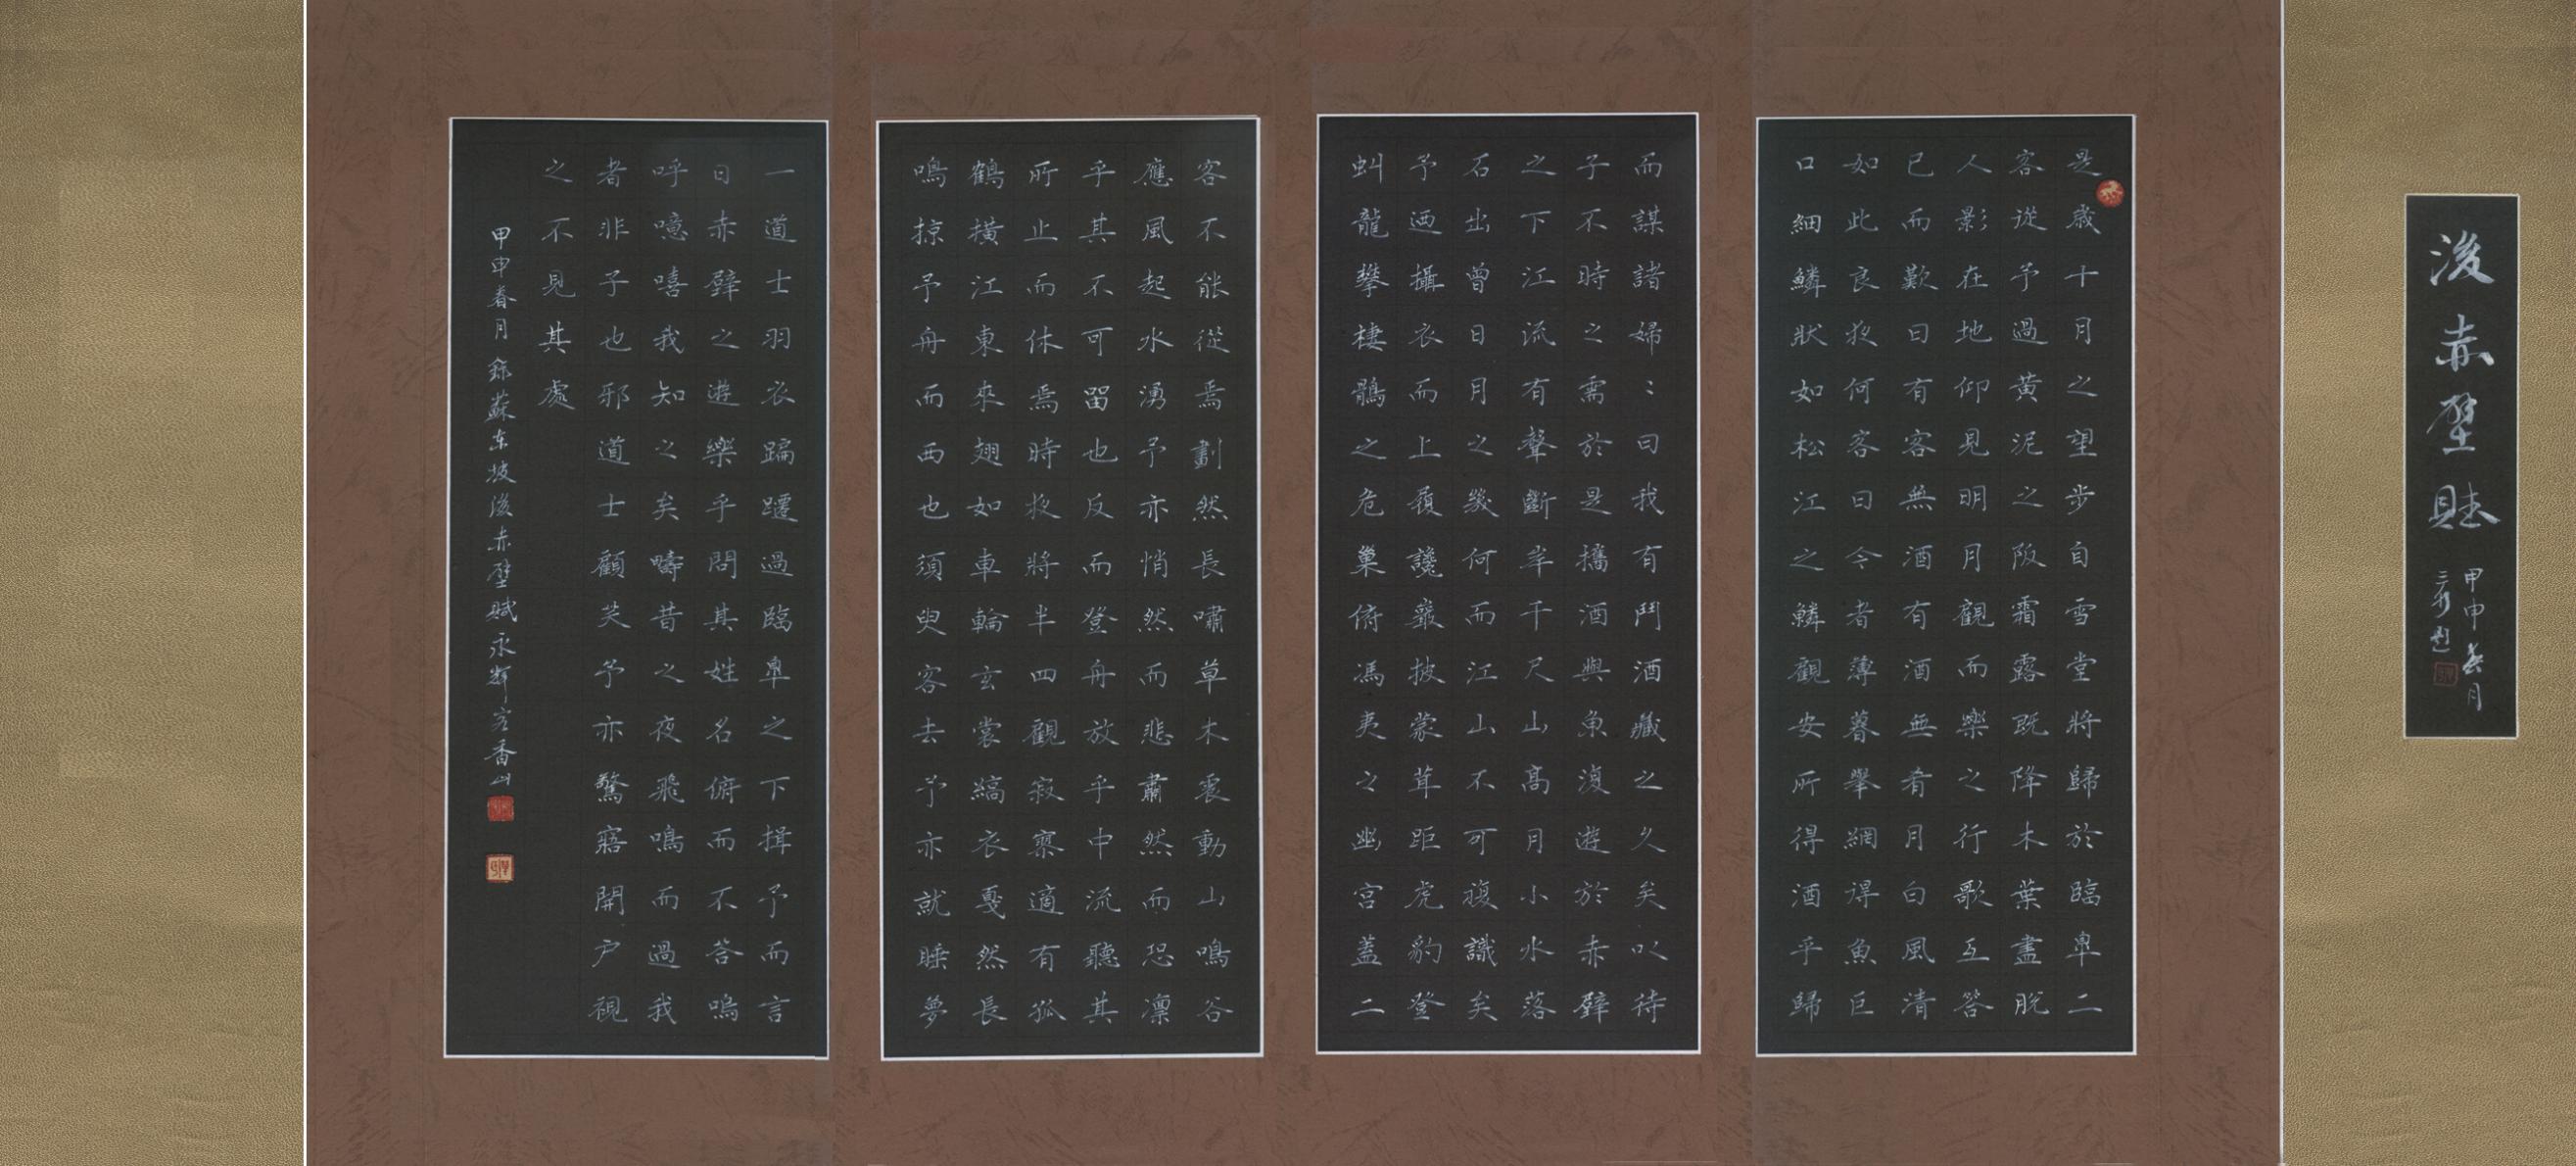 後赤壁賦
甲申春月
題
是歲十月之望步自雪堂將歸於臨皐二
客從予過黃泥之阪霜露既降木葉盡脫
人影在地仰見明月觀而樂之行歌互答
已而歎曰有客無酒有酒無肴月白風清
如此良夜何客曰今者薄暮舉網得魚巨
口細鱗狀如松江之鱗觀安所得酒乎歸
而謀諸婦：曰我有鬥酒藏之久矣以待
子不時之需於是攜酒與魚復遊於赤壁
之下江流有聲斷岸千尺山高月小水落
石出曾日月之幾何而江山不可複識矣
予迺攝衣而上履讒巖披蒙茸距虎豹登
虯龍攀棲鶻之危巢俯馮夷之幽宮蓋二
客不能從焉劃然長嘯草木震動山鳴谷
應風起水湧予亦悄然而悲肅然而恐凜
乎其不可留也反而登舟放乎中流聽其
所止而休焉時夜將半四觀寂寥適有孤
鶴橫江東來翅如車輪玄裳縞衣戛然長
鳴掠予舟而西也須臾客去予亦就睡夢
一道士羽衣蹁躚過臨皐之下揖予而言
曰赤壁之遊樂乎問其姓名俯而不答嗚
呼噫嘻我知之矣疇昔之夜飛鳴而過我
者非子也邪道士顧笑予亦驚寤開戶視
之不見其處
甲申春月錄蘇東坡後赤壁賦永輝客香山